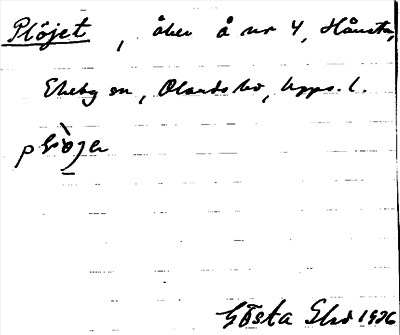 Plöjet, åker å nr 4, Hånsta,
Ekeby sn, Olands hd, Upps. l.
Gösta 1926